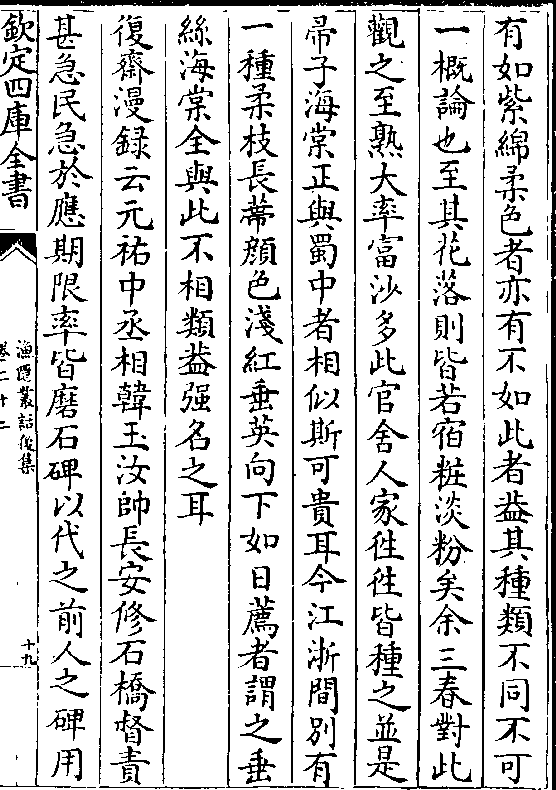 有如紫綿柔色者亦有不如此者葢其種類不同不可
一概論也至其花落則皆若宿粧淡粉矣余三春對此
觀之至熟大率富沙多此官舍人家徃徃皆種之並是
帚子海棠正與蜀中者相似斯可貴耳今江浙間別有
一種柔枝長蔕顔色淺紅垂英向下如日蔫者謂之垂
絲海棠全與此不相類葢强名之耳
復齋漫録云元祐中丞相韓玉汝帥長安修石橋督責
甚急民急於應期限率皆磨石碑以代之前人之碑用
欽定四庫全書
漁隱叢話後集
卷二十二
十九